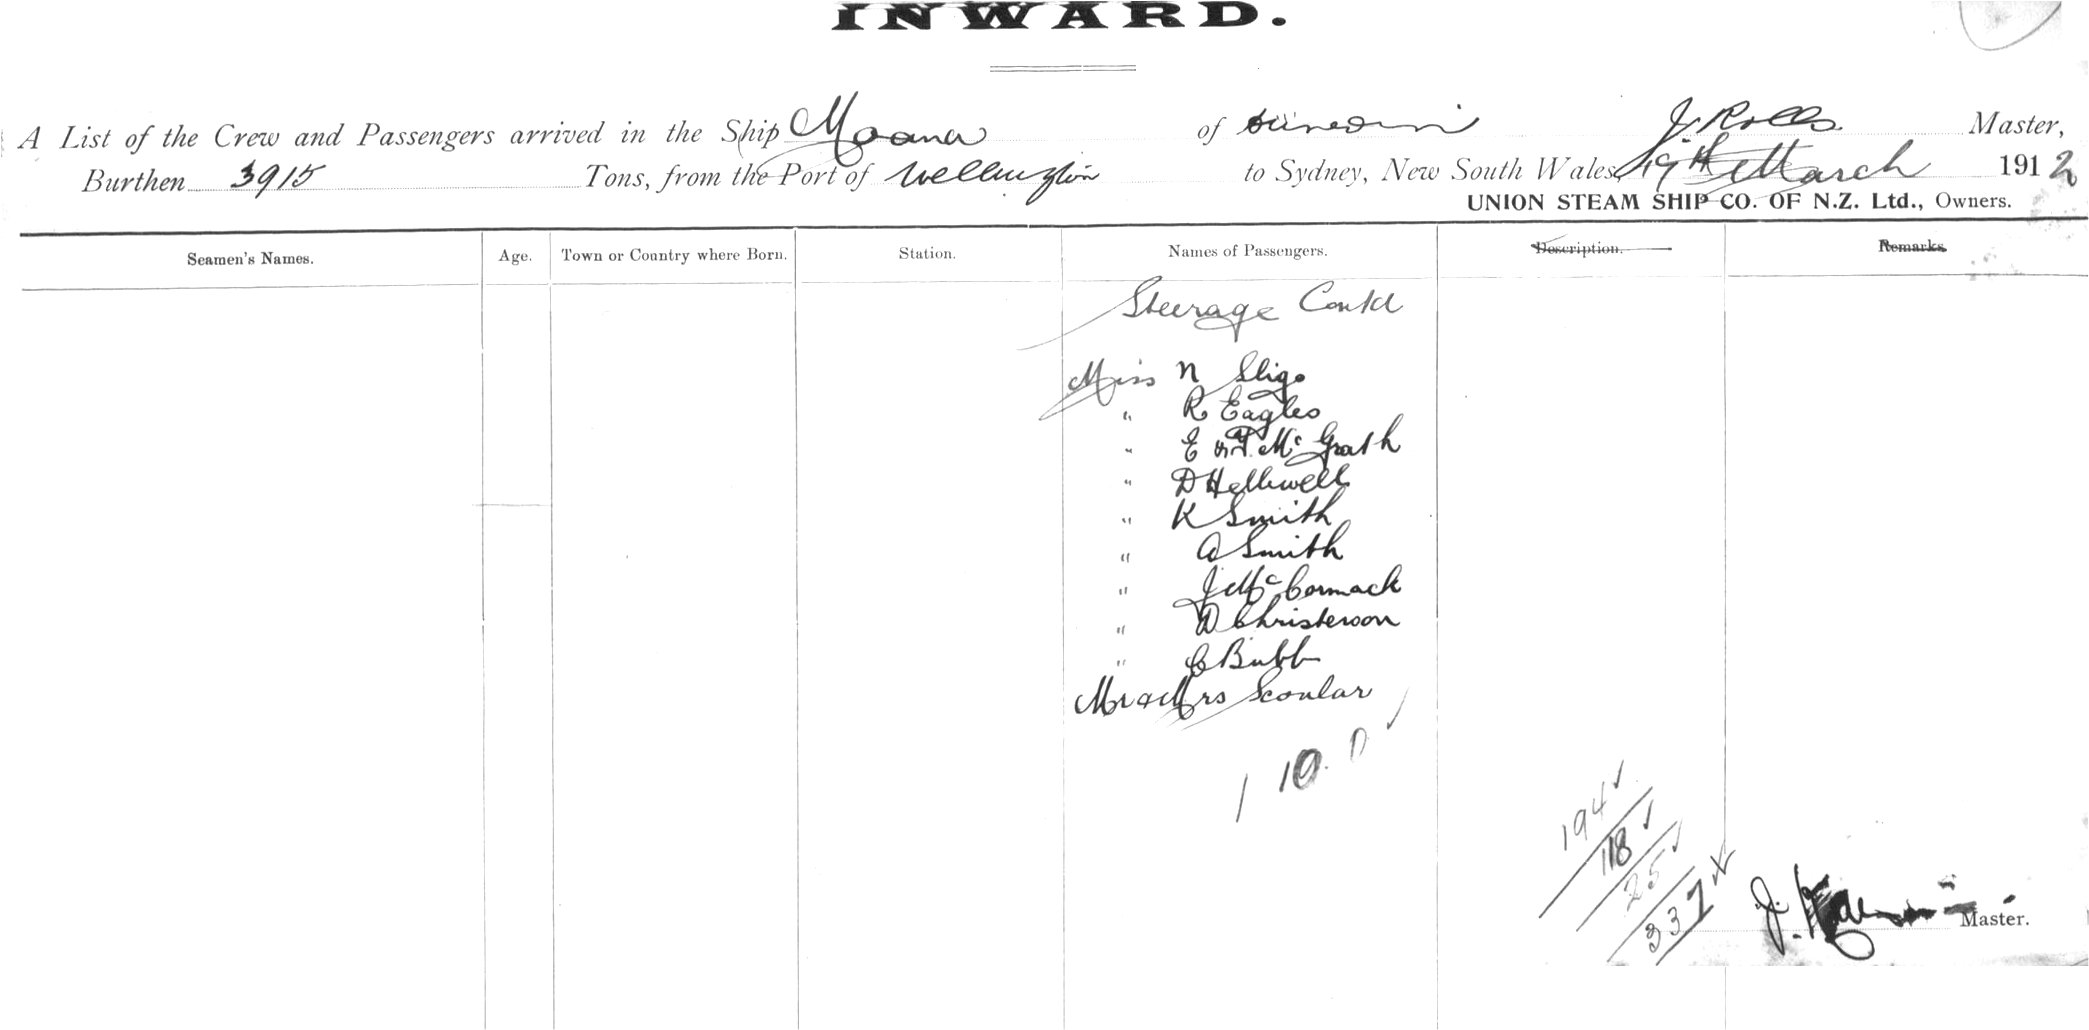 INWARD.
A List of the Crew and Passengers arrived in the Ship Moana of Dunedin J. Rolls Master,
Burthen 3915 Tons, from the Port of Wellington to Sydney, New South Wales, 19th March 1912
UNION STEAM SHIP CO. OF N.Z. Ltd., Owners.
Seamen's Names. Age. Town or Country where Born. Station. Names of Passengers. Description. Remarks.
Steerage Contd
Miss N Sligo
" R Eagles
" E & F. McGrath
" D Helliwell
" K Smith
" A Smith
" J McCormack
" D Christerson
" C Bubb
Mr & Mrs Scoular
194
118
25
337
J. Master.